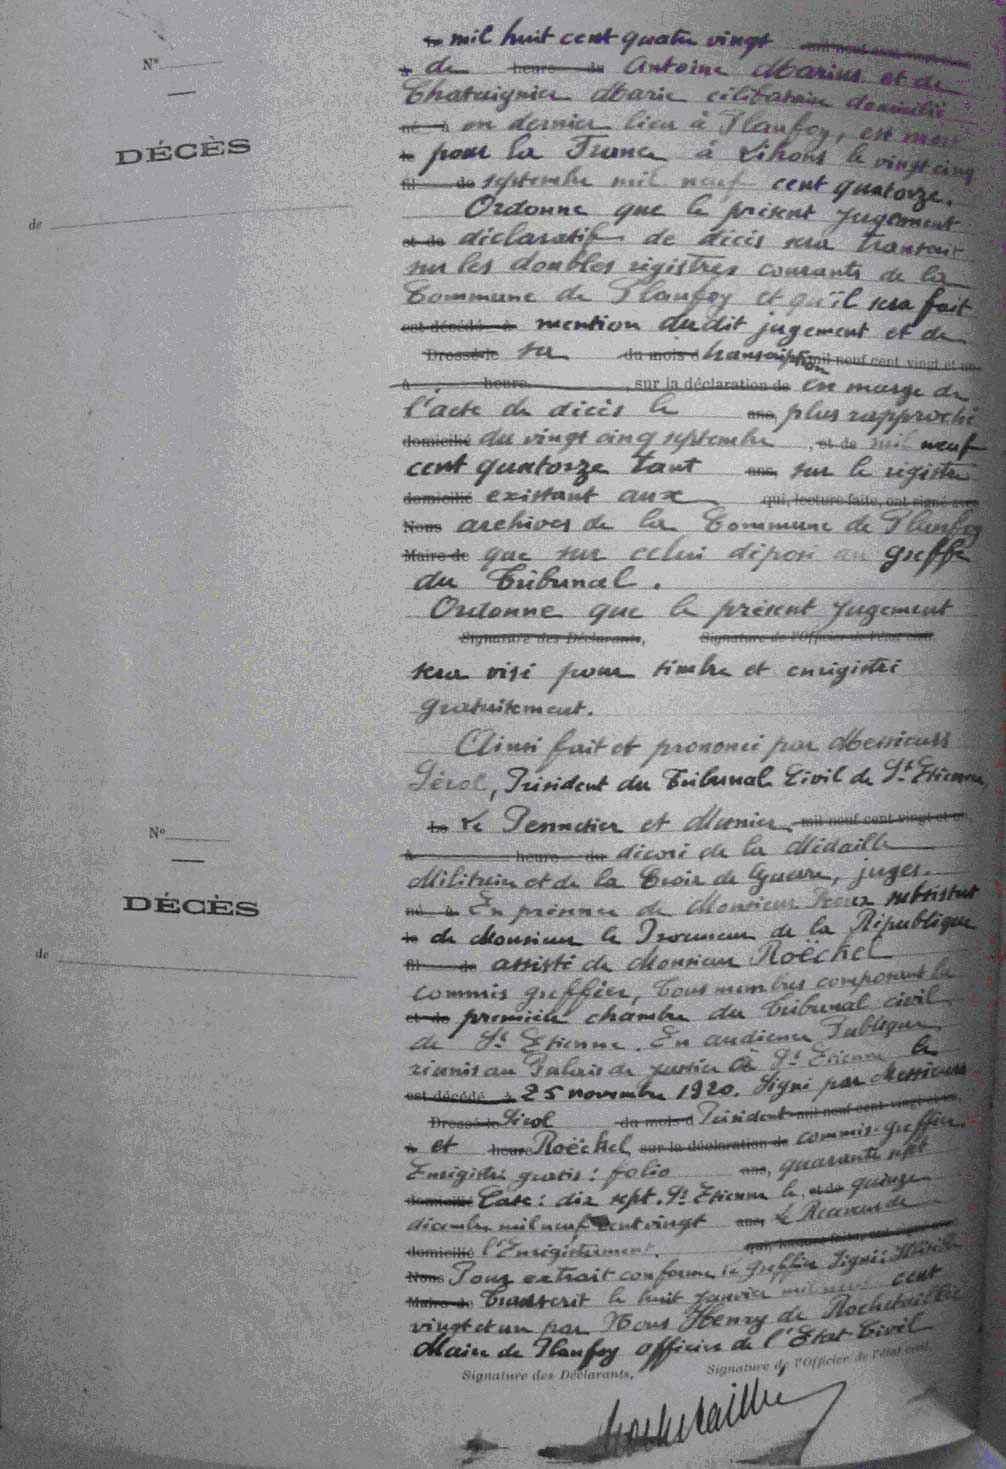 le mil huit cent quatre vingt mil neuf cent vingt et un,
N°
à de heure du Antoine Marius et de
Chataignier Marie célibataire domicilié
né à en dernier lieu à Planfoy, est mort
DÉCÈS
le pour la France à Lihons le vingt cinq
fil de septembre mil neuf cent quatorze.
de
Ordonne que le présent jugement
et de déclaratif de décès sera transcrit
sur les doubles registres courants de la
Commune de Planfoy et qu'il sera fait
est décédé à mention dudit jugement et de
Dressé le sa du mois d transcription mil neuf cent vingt et un,
à heure, sur la déclaration de en marge de
l'acte de décès le ans, plus rapproché
domicilié du vingt cinq septembre, et de mil neuf
cent quatorze tant ans, sur le registre
domicilié existant aux qui, lecture faite, ont signé avec
Nous archives de la Commune de Planfoy
Maire de que sur celui déposé au greffe
du Tribunal.
Ordonne que le présent jugement
Signature des Déclarants, Signature de l'Officier de l'état civil,
sera visé pour timbre et enregistré
gratuitement.
Ainsi fait et prononcé par Messieurs
Sérol, Président du Tribunal Civil de St Etienne,
N°
Le Le Pennetier et Munier, mil neuf cent vingt et un,
à heure du décoré de la Médaille
Militaire et de la Croix de Guerre, juges.
DÉCÈS
né à En présence de Monsieur Roux substitut
le de Monsieur le Procureur de la République
de
fil de assisté de Monsieur Roëckel
commis greffier, Tous membres composant la
et de première chambre du Tribunal civil
de St Etienne. En audience Publique
réunis au Palais de justice à St Etienne le
est décédé à 25 novembre 1920. Signé par Messieurs
Dressé le Sérol du mois d Président mil neuf cent vingt et un,
à et heure Roëckel, sur la déclaration de commis-greffier.
Enregistré gratis: folio ans, quarante sept
domicilié Case: dix sept. St Etienne le, et de quinze
décembre mil neuf cent vingt ans, Le Receveur de
domicilié l'Enregistrement. qui, lecture faite, ont signé avec
Nous Pour extrait conforme, le greffier Signé:
Maire de Transcrit le huit janvier mil neuf cent
vingt et un par Nous Henry de Rochetaillée
Maire de Planfoy officier de l'Etat Civil
Signature des Déclarants, Signature de l'Officier de l'état civil,
Rochetaillée